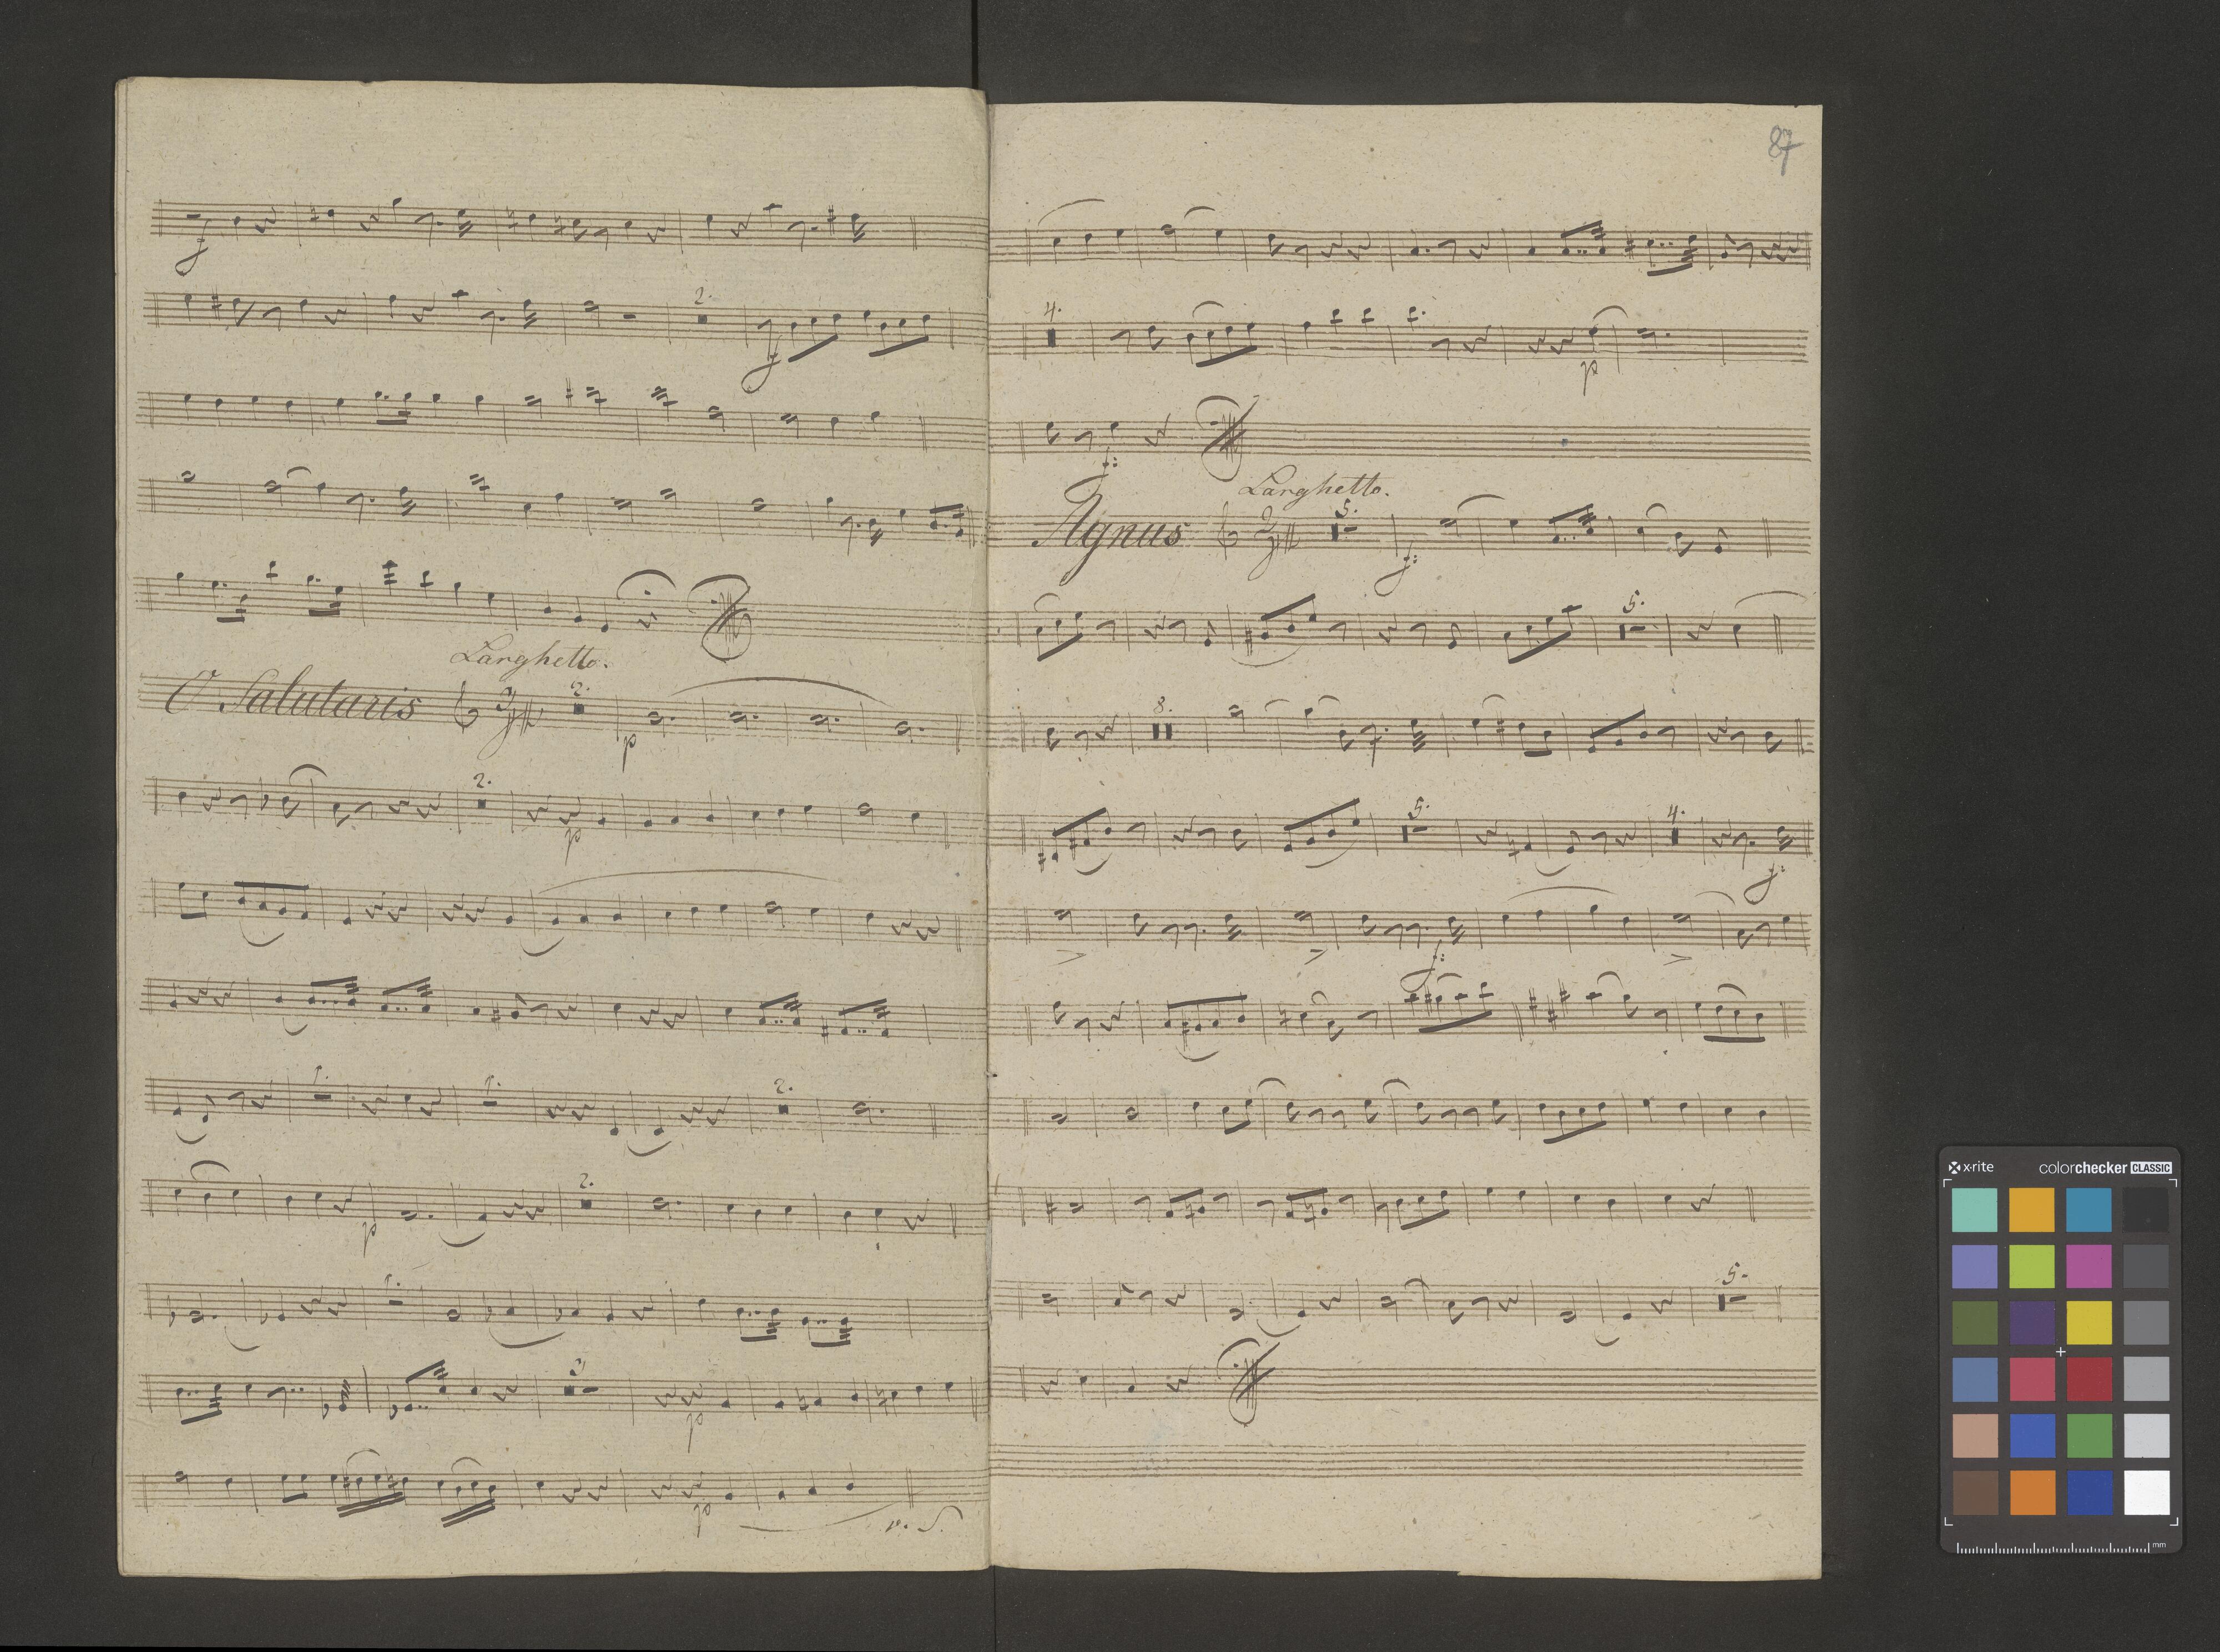 f
2.
f
Larghetto.
O Salutaris 3/4 2.
p
2.
p
1. 1. 2.
2.
p
1.
3
p
p
v. S.
87
4.
p
f:
Larghetto.
Agnus 2/4 5.
f:
5.
8.
5. 4.
f:
> > >
f:
5.
x-rite colorchecker CLASSIC
mm